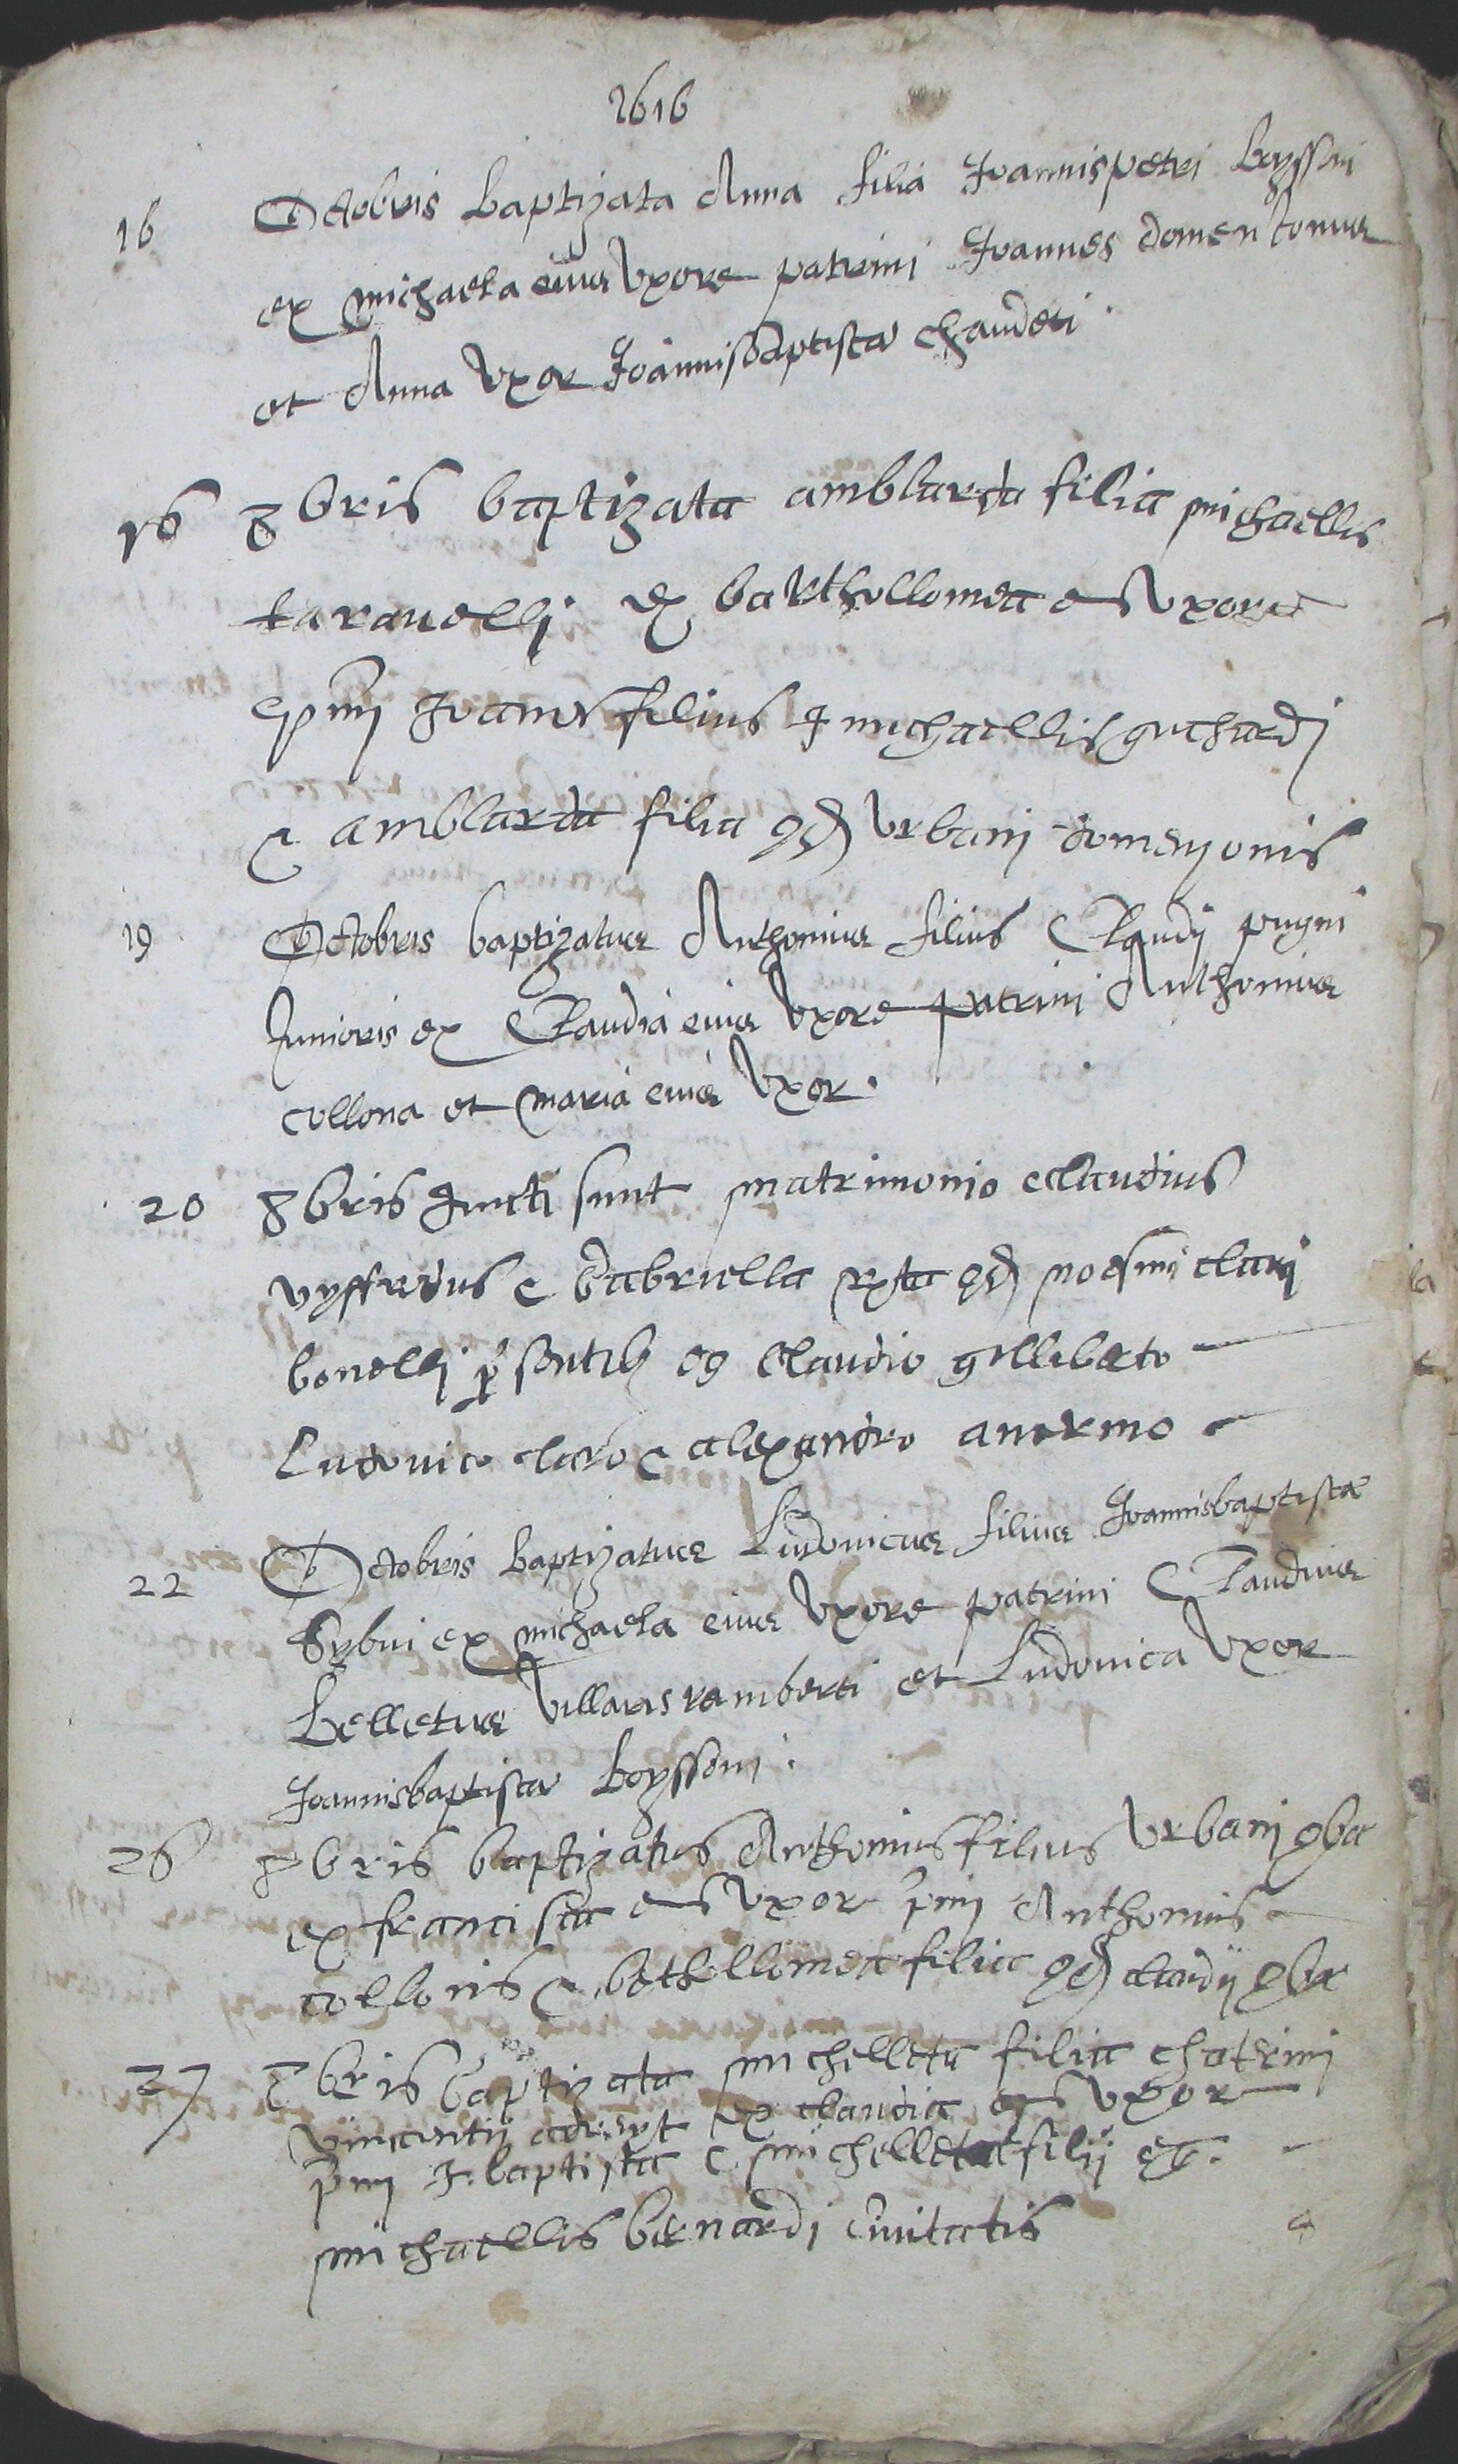 1616
16 Octobris baptizata Anna filia Joannispetri Boyssoni
ex michaela eius Uxore patrini Joannes domen
et Anna Uxor Joannisbaptistae chaudeti
16 8bris baptizata amblarda filia michaellis
taravelli ex barthollomea Uxore
Joanes filius michaellis guchardj
amblarda filia qd Urbanj domenjonis
19 Octobris baptizatus Anthonius filius Claudij pugni
Junioris ex Claudia eius Uxore patrini Anthonius
collona et maria eius Uxor.
20 8bris Juncti sunt matrimonio claudius
vyffredus Gabriella rxta qd
bonelli claudio gilliberto
Ludovico claro alexandro anermo
22 Octobris baptizatus Ludovicus filius Joannisbaptistae
Sybui ex michaela eius Uxore patrini Claudius
Belletus Villarisramberti et Ludovica Uxor
Joannisbaptistae Boyssoni.
26 8bris baptizatus Anthonius filius Urbanj
ex francisca Uxor pnj Anthonius
collonis filia qd claudij
27 8bris baptizata micheleta filia
vincentij ex claudia Uxor
pnj J. baptista micheleta filij
michaellis bernardi Civitatis